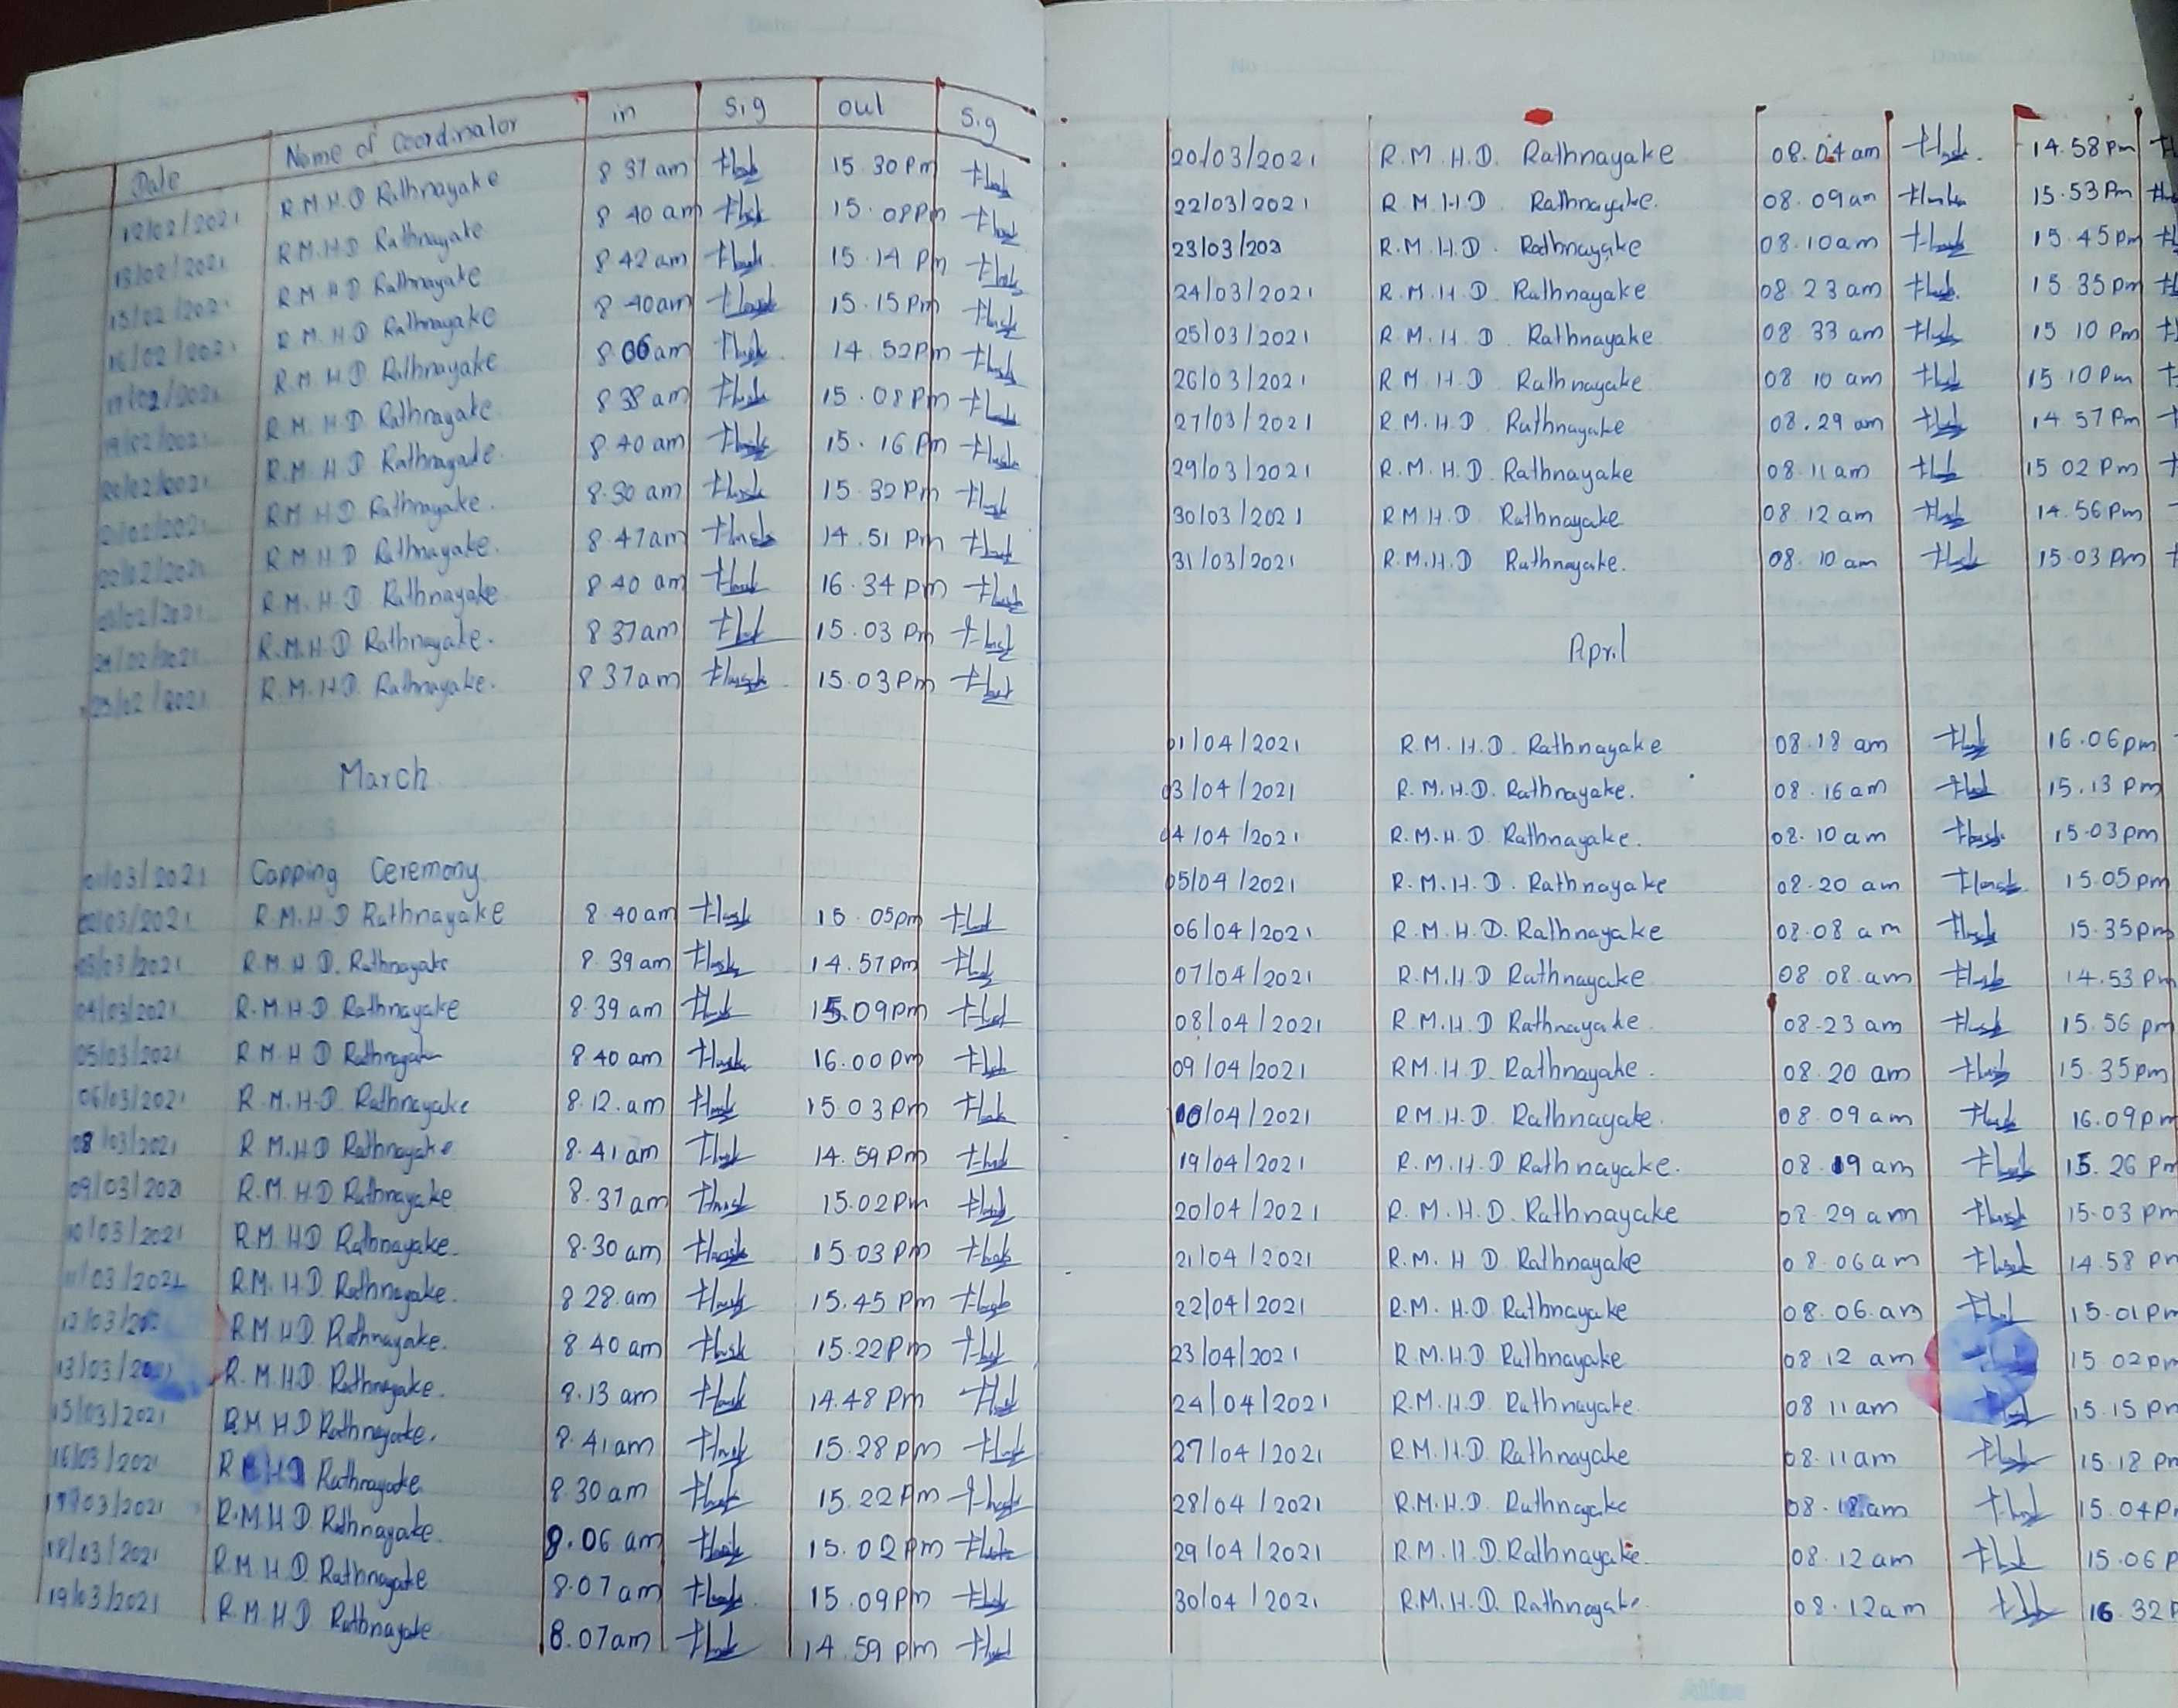 Date Name of Coordinator in Sig out Sig
12/02/2021 R.M.H.D Rathnayake 8 37 am 15.30 Pm
13/02/2021 R.M.H.D Rathnayake 8 40 am 15.08 Pm
15/02/2021 R M H D Rathnayake 8 42 am 15.14 Pm
16/02/2021 R.M.H.D Rathnayake 8 40am 15.15 Pm
17/02/2021 R.M.H.D Rathnayake 8.06am 14.52Pm
19/02/2021 R.M.H.D Rathnayake 8 38 am 15.08 Pm
20/02/2021 R.M.H D Rathnayake. 8 40 am 15.16 Pm
21/02/2021 R M H D Rathnayake. 8.30 am 15.32 Pm
22/02/2021 R.M H D Rathnayake. 8.47am 14.51 Pm
23/02/2021 R.M.H.D Rathnayake 8 40 am 16.34 pm
24/02/2021 R.M.H.D Rathnayake. 8 37am 15.03 Pm
25/02/2021 R.M.H.D. Rathnayake. 8 37am 15.03 Pm
March
01/03/2021 Capping Ceremony
02/03/2021 R.M.H.D Rathnayake 8.40 am 15 05pm
03/03/2021 R.M.H D. Rathnayake 8.39 am 14.57 pm
04/03/2021 R.M.H.D Rathnayake 8.39 am 15.09 pm
05/03/2021 R M H D Rathnayake 8.40 am 16.00 pm
06/03/2021 R.M.H.D. Rathnayake 8.12.am 15.03 Pm
08/03/2021 R M.H.D Rathnayake 8.41 am 14.59 Pm
09/03/2021 R.M.H.D Rathnayake 8.37 am 15.02 Pm
10/03/2021 R.M HD Rathnayake. 8.30 am 15.03 Pm
11/03/2021 R.M. H.D. Rathnayake. 8 28 am 15.45 Pm
12/03/202 R.M.H.D. Rathnayake. 8.40 am 15.22Pm
13/03/2021 R.M.H.D. Rathnayake. 8.13 am 14.48 Pm
15/03/2021 R.M H D Rathnayake. 8.41am 15.28 pm
16/03/2021 R H D Rathnayake 8.30 am 15.22 Pm
17/03/2021 R.M.H D Rathnayake. 8.06 am 15.02 pm
18/03/2021 R.M.H.D. Rathnayake 8.07 am 15.09 Pm
19/03/2021 R.M.H.D Rathnayake 8.07am 14.59 pm
20/03/2021 R.M.H.D. Rathnayake 08.04 am 14.58 Pm
22/03/2021 R M.H.D Rathnayake. 08.09am 15.53 Pm
23/03/202 R.M.H.D. Rathnayake 08.10am 15.45 Pm
24/03/2021 R.M.H.D. Rathnayake 08.23 am 15 35 pm
25/03/2021 R.M.H.D Rathnayake 08 33 am 15 10 Pm
26/03/2021 R M.H.D Rathnayake 08 10 am 15 10 Pm
27/03/2021 R.M.H.D Rathnayake 08.29 am 14 57 Pm
29/03/2021 R.M.H.D. Rathnayake 08.11am 15 02 Pm
30/03/2021 R M H.D Rathnayake 08.12 am 14.56 Pm
31/03/2021 R.M.H.D Rathnayake. 08.10 am 15.03 Pm
April
01/04/2021 R.M.H.D. Rathnayake 08.18 am 16.06pm
03/04/2021 R.M.H.D. Rathnayake. 08.16am 15.13 pm
04/04/2021 R.M.H.D. Rathnayake. 08.10 am 15.03pm
05/04/2021 R.M.H.D. Rathnayake 08.20 am 15.05 pm
06/04/2021 R.M.H.D. Rathnayake 08.08 am 15.35pm
07/04/2021 R.M.H.D Rathnayake 08 08.am 14.53 Pm
08/04/2021 R.M.H.D Rathnayake. 08.23 am 15.56 pm
09/04/2021 RM.H.D. Rathnayake. 08.20 am 15.35pm
10/04/2021 R.M.H.D. Rathnayake. 08.09 am 16.09pm
19/04/2021 R.M.H.D Rathnayake. 08.19 am 15.26 Pm
20/04/2021 R.M.H.D. Rathnayake 08 29 am 15.03 pm
21/04/2021 R.M.H D Rathnayake 08.06am 14.58 pm
22/04/2021 R.M.H.D Rathnayake 08.06.am 15.01Pm
23/04/2021 R.M.H.D Rathnayake 08 12 am 15 02pm
24/04/2021 R.M.H.D Rathnayake 08 11 am 15.15 pm
27/04/2021 R.M.H.D. Rathnayake 08.11am 15.18 pm
28/04/2021 R.M.H.D. Rathnayake 08.18.am 15.04P
29/04/2021 R.M.H.D.Rathnayake. 08.12am 15.06 P
30/04/2021 R.M.H.D. Rathnayake 08.12am 16.32P